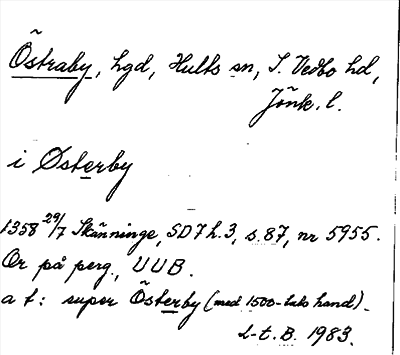 Östraby, hgd, Hults sn, S. Vedbo hd,
Jönk. l.
i Østerby
1358 29/7 Skänninge, SD 7 h. 3, s. 87, nr 5955.
Or på perg., UUB.
a t: super Österby (med 1500-tals hand).
L-t.B. 1983.